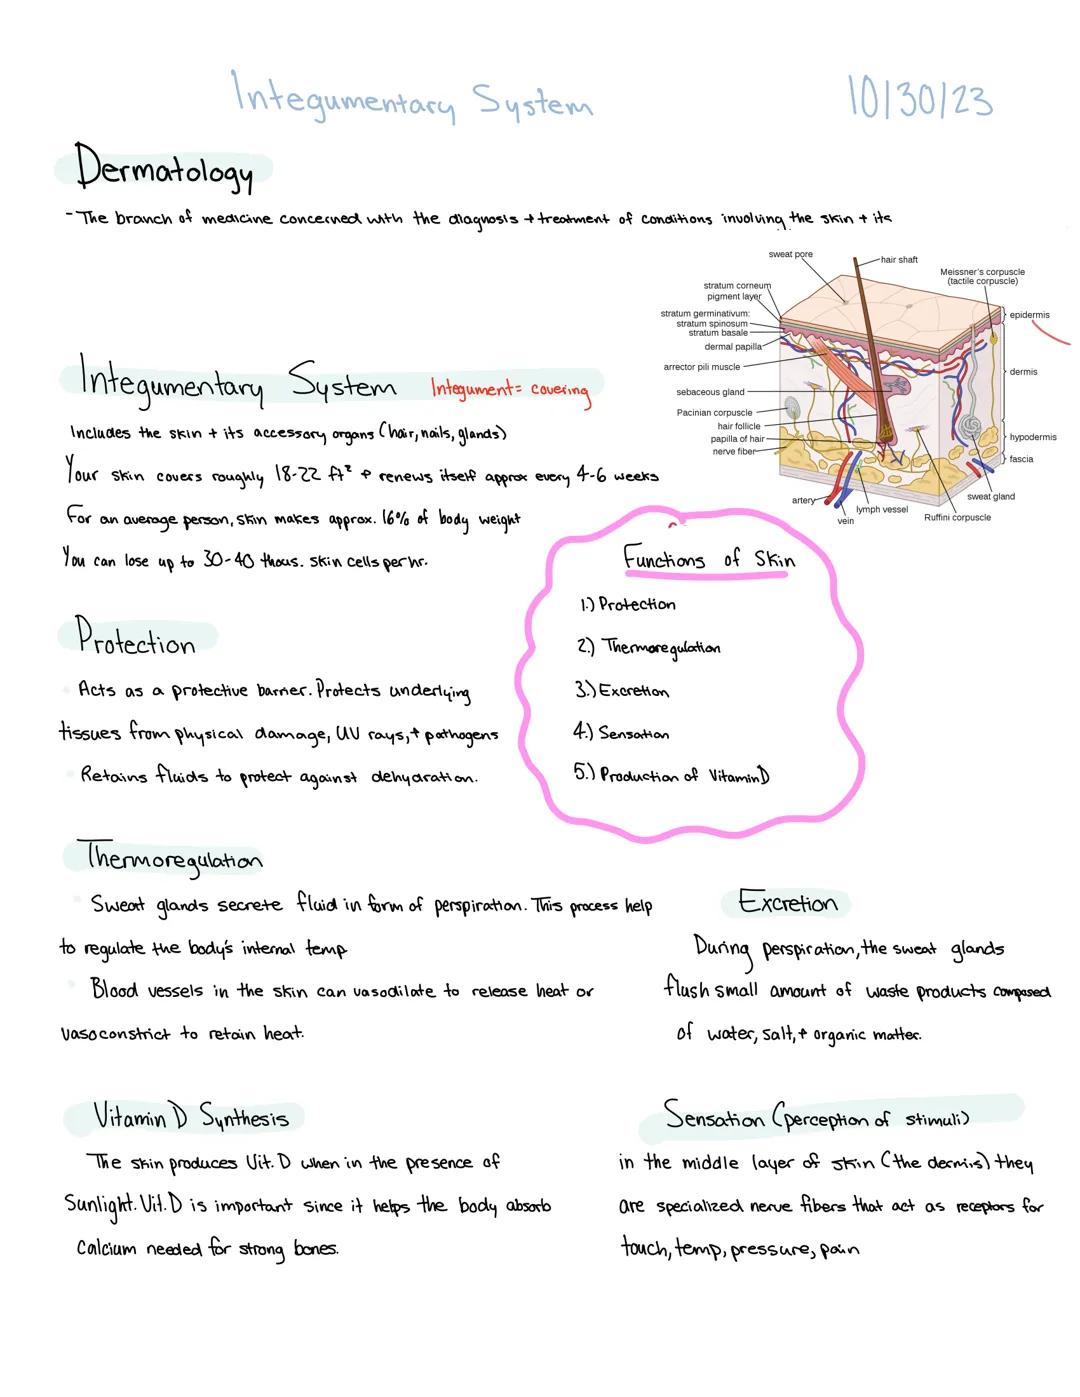 Integumentary System 10/30/23
Dermatology
- The branch of medicine concerned with the diagnosis + treatment of conditions involving the skin + its
sweat pore
hair shaft
Meissner's corpuscle
(tactile corpuscle)
stratum corneum
pigment layer
stratum germinativum:
stratum spinosum
stratum basale
dermal papilla
arrector pili muscle
sebaceous gland
Pacinian corpuscle
hair follicle
papilla of hair
nerve fiber
epidermis
dermis
hypodermis
fascia
sweat gland
artery
vein
lymph vessel
Ruffini corpuscle
Integumentary System Integument= covering
Includes the skin + its accessory organs (hair, nails, glands)
Your skin covers roughly 18-22 ft² + renews itself approx every 4-6 weeks
For an average person, skin makes approx. 16% of body weight
You can lose up to 30-40 thous. skin cells per hr.
Functions of Skin
1.) Protection
2.) Thermoregulation
3.) Excretion
4.) Sensation
5.) Production of Vitamin D
Protection
Acts as a protective barrier. Protects underlying
tissues from physical damage, UV rays, + pathogens
Retains fluids to protect against dehydration.
Thermoregulation
Sweat glands secrete fluid in form of perspiration. This process help
to regulate the body's internal temp
Blood vessels in the skin can vasodilate to release heat or
vasoconstrict to retain heat.
Excretion
During perspiration, the sweat glands
flush small amount of waste products composed
of water, salt, + organic matter.
Vitamin D Synthesis
The skin produces Vit. D when in the presence of
Sunlight. Vit. D is important since it helps the body absorb
Calcium needed for strong bones.
Sensation (perception of stimuli)
in the middle layer of skin (the dermis) they
are specialized nerve fibers that act as receptors for
touch, temp, pressure, pain